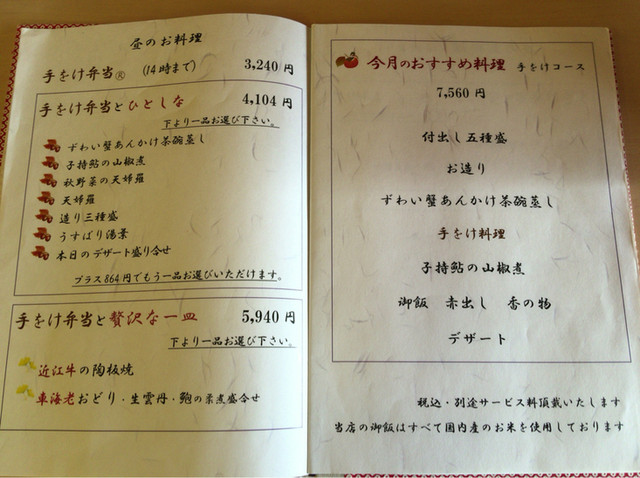 昼のお料理
手をけ弁当 (14時まで) 3,240 円
手をけ弁当とひとしな 4,104 円
下より一品お選び下さい。
ずわい蟹あんかけ茶碗蒸し
子持鮎の山椒煮
秋野菜の天婦羅
天婦羅
造り三種盛
うすばり湯葉
本日のデザート盛り合せ
プラス864円でもう一品お選びいただけます。
手をけ弁当と贅沢な一皿 5,940 円
下より一品お選び下さい。
近江牛の陶板焼
車海老おどり・生雲丹・鮑の柔煮盛合せ
今月のおすすめ料理 手をけコース
7,560 円
付出し五種盛
お造り
ずわい蟹あんかけ茶碗蒸し
手をけ料理
子持鮎の山椒煮
御飯 赤出し 香の物
デザート
税込・別途サービス料頂戴いたします
当店の御飯はすべて国内産のお米を使用しております